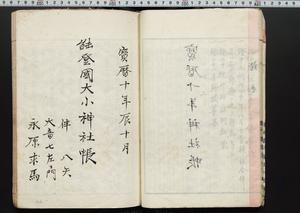 寶暦十年辰十月
能登國大小神社帳
伴 八矢
大音七左門
永原求馬
寶暦十年神社帳